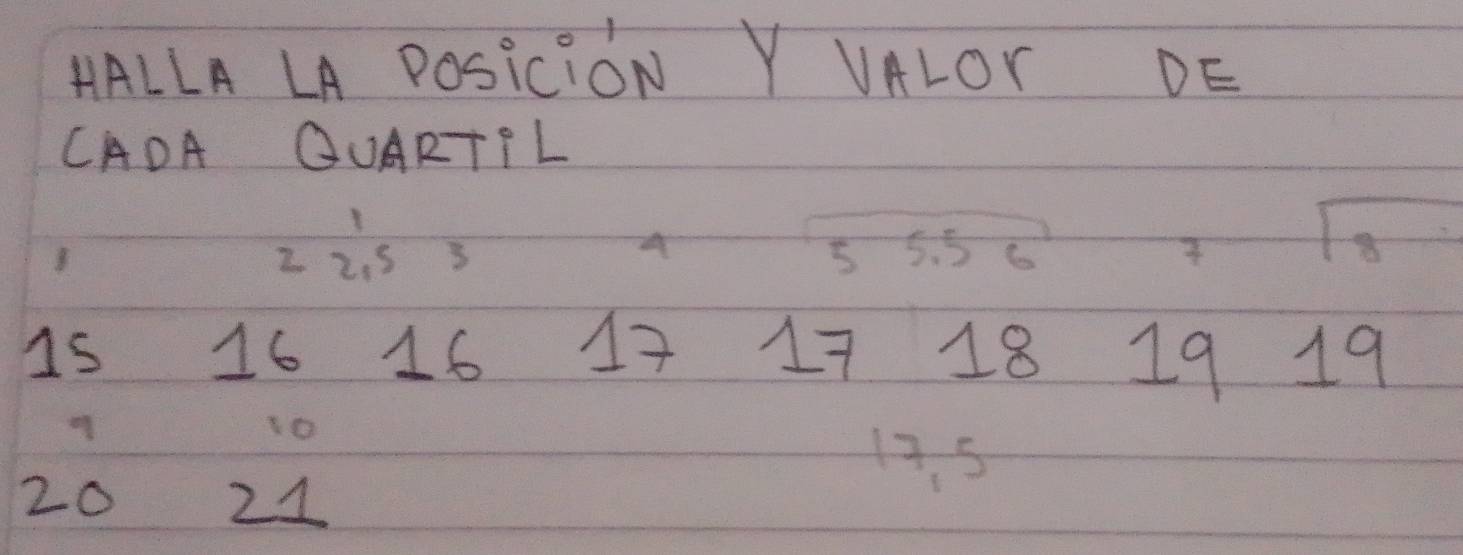 HALLA LA POSICIÓN Y VALOR DE
CADA QUARTIL
1 2 2,5 3 4 5 5.5 6 7 8
15 16 16 17 17 18 19 19
9 10
17,5
20 21